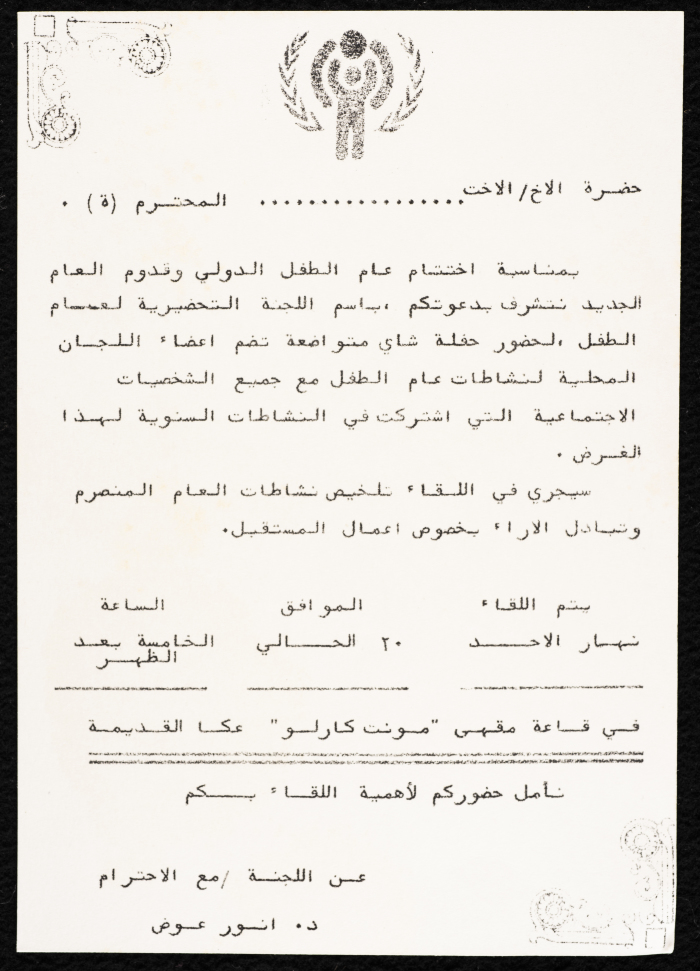 حضرة الاخ/الاخت.................. المحترم (ة) .
بمناسبة اختتام عام الطفل الدولي وقدوم العام
الجديد نتشرف بدعوتكم ،باسم اللجنة التحضيرية لعام
الطفل ،لحضور حفلة شاي متواضعة تضم اعضاء اللجان
المحلية لنشاطات عام الطفل مع جميع الشخصيات
الاجتماعية التي اشتركت في النشاطات السنوية لهذا
الغرض .
سيجري في اللقاء تلخيص نشاطات العام المنصرم
وتبادل الاراء بخصوص اعمال المستقبل.
يتم اللقاء الموافق الساعة
نهار الاحد ٢٠ الحالي الخامسة بعد
الظهر
في قاعة مقهى "مونت كارلو" عكا القديمة
نأمل حضوركم لأهمية اللقاء بكم
عن اللجنة /مع الاحترام
د. انور عوض